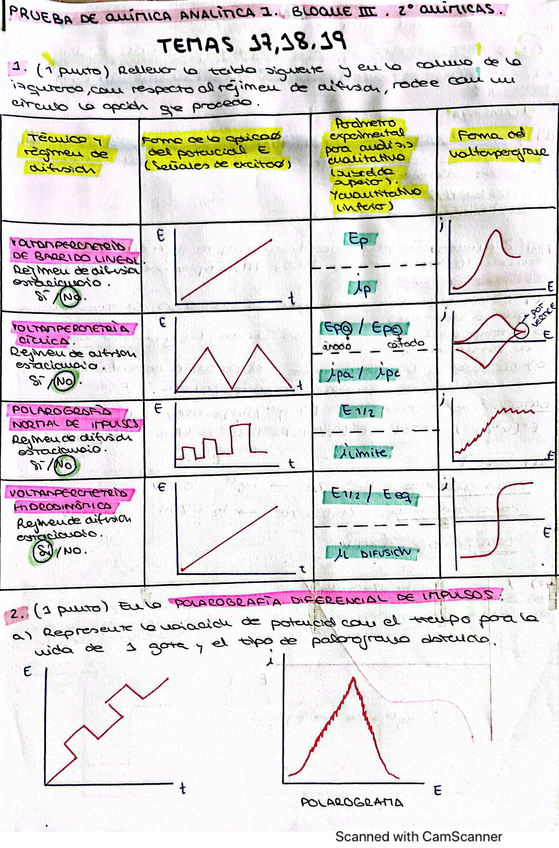 PRUEBA DE QUÍMICA ANALÍTICA I. BLOQUE III. 2º QUÍMICAS.
TEMAS 17,18,19
1. (1 punto) Rellenar la tabla siguiente y en la columna de la
izquierda, con respecto al régimen de difusión, rodee con un
círculo la opción que proceda.
Técnica y
régimen de
difusión
Forma de la aplicación
del potencial E
(Señales de excitación)
Parámetro
experimental
para análisis
cualitativo
(superior).
Y cuantitativo
(inferior)
Forma del
voltamperograma
VOLTAMPEROMETRÍA
DE BARRIDO LINEAL
Régimen de difusión
estacionario.
Sí / No.
E
t
Ep
ip
i
E
VOLTAMPEROMETRÍA
CÍCLICA.
Régimen de difusión
estacionario.
Sí / No.
E
t
Epa / Epc
ánodo cátodo
ipa / ipc
i
E
POLAROGRAFÍA
NORMAL DE IMPULSOS
Régimen de difusión
estacionario.
Sí / No.
E
t
E1/2
iLímite
i
E
VOLTAMPEROMETRÍA
HIDRODINÁMICA
Régimen de difusión
estacionario.
Sí / NO.
E
t
E1/2 / Eeq
iL DIFUSIÓN
i
E
2. (1 punto) En la POLAROGRAFÍA DIFERENCIAL DE IMPULSOS:
a) Represente la variación de potencial con el tiempo para la
vida de 1 gota y el tipo de polarograma obtenido.
E
t
i
E
POLAROGRAMA
Scanned with CamScanner